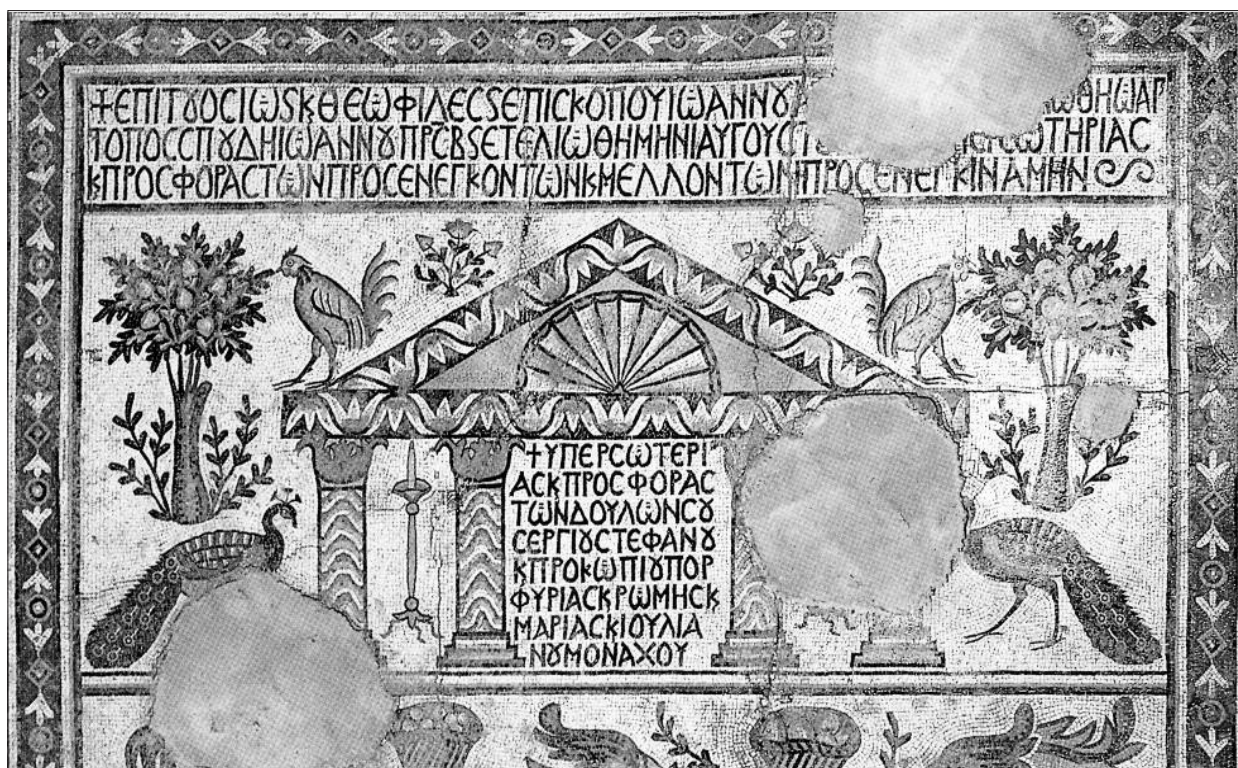 ✝ΕΠΙΤȢΟCΙѠSΚΘΕѠΦΙΛΕCSΕΠΙCΚΟΠΟΥΙѠΑΝΝȢ ѠΘΗѠΑΓ
ΤΟΠΟCCΠȢΔΗΙѠΑΝΝȢΠΡCΒSΕΤΕΛΙѠΘΗΜΗΝΙΑΥΓΟΥCΤ CѠΤΗΡΙΑC
ΚΠΡΟCΦΟΡΑCΤѠΝΠΡΟCΕΝΕΓΚΟΝΤѠΝΚΜΕΛΛΟΝΤѠΝΠΡΟCΕΝΕΓΚΙΝΑΜΗΝ
✝ΥΠΕΡCѠΤΕΡΙ
ΑCΚΠΡΟCΦΟΡΑC
ΤѠΝΔΟΥΛѠΝCȢ
CΕΡΓΙȢCΤΕΦΑΝȢ
ΚΠΡΟΚѠΠΙȢΠΟΡ
ΦΥΡΙΑCΚΡѠΜΗCΚ
ΜΑΡΙΑCΚΙΟΥΛΙΑ
ΝȢΜΟΝΑΧΟΥ